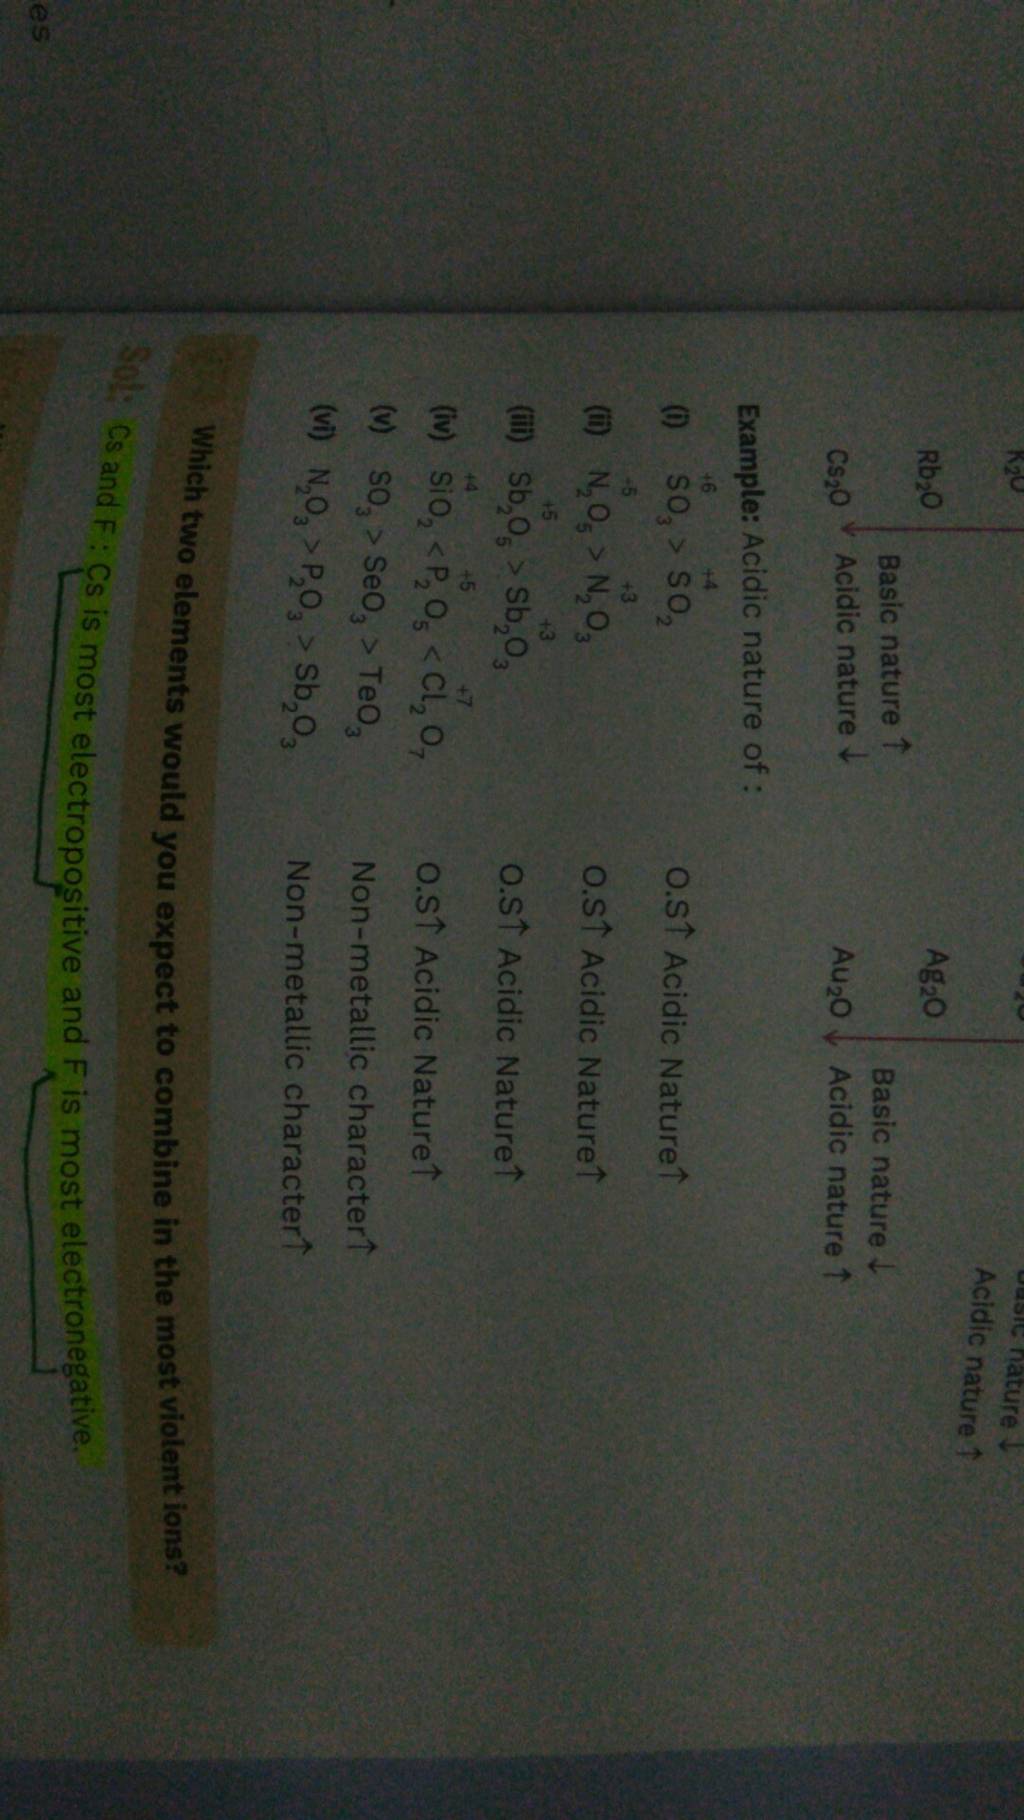 es
K₂O
Basic nature ↓
Rb₂O Ag₂O Acidic nature ↑
Basic nature ↑ Basic nature ↓
Cs₂O Acidic nature ↓ Au₂O Acidic nature ↑
Example: Acidic nature of :
+6 +4
(i) SO₃ > SO₂ O.S↑ Acidic Nature↑
+5 +3
(ii) N₂O₅ > N₂O₃ O.S↑ Acidic Nature↑
+5 +3
(iii) Sb₂O₅ > Sb₂O₃ O.S↑ Acidic Nature↑
+4 +5 +7
(iv) SiO₂ < P₂O₅ < Cl₂O₇ O.S↑ Acidic Nature↑
(v) SO₃ > SeO₃ > TeO₃ Non-metallic character↑
(vi) N₂O₃ > P₂O₃ > Sb₂O₃ Non-metallic character↑
Which two elements would you expect to combine in the most violent ions?
Sol: Cs and F : Cs is most electropositive and F is most electronegative.